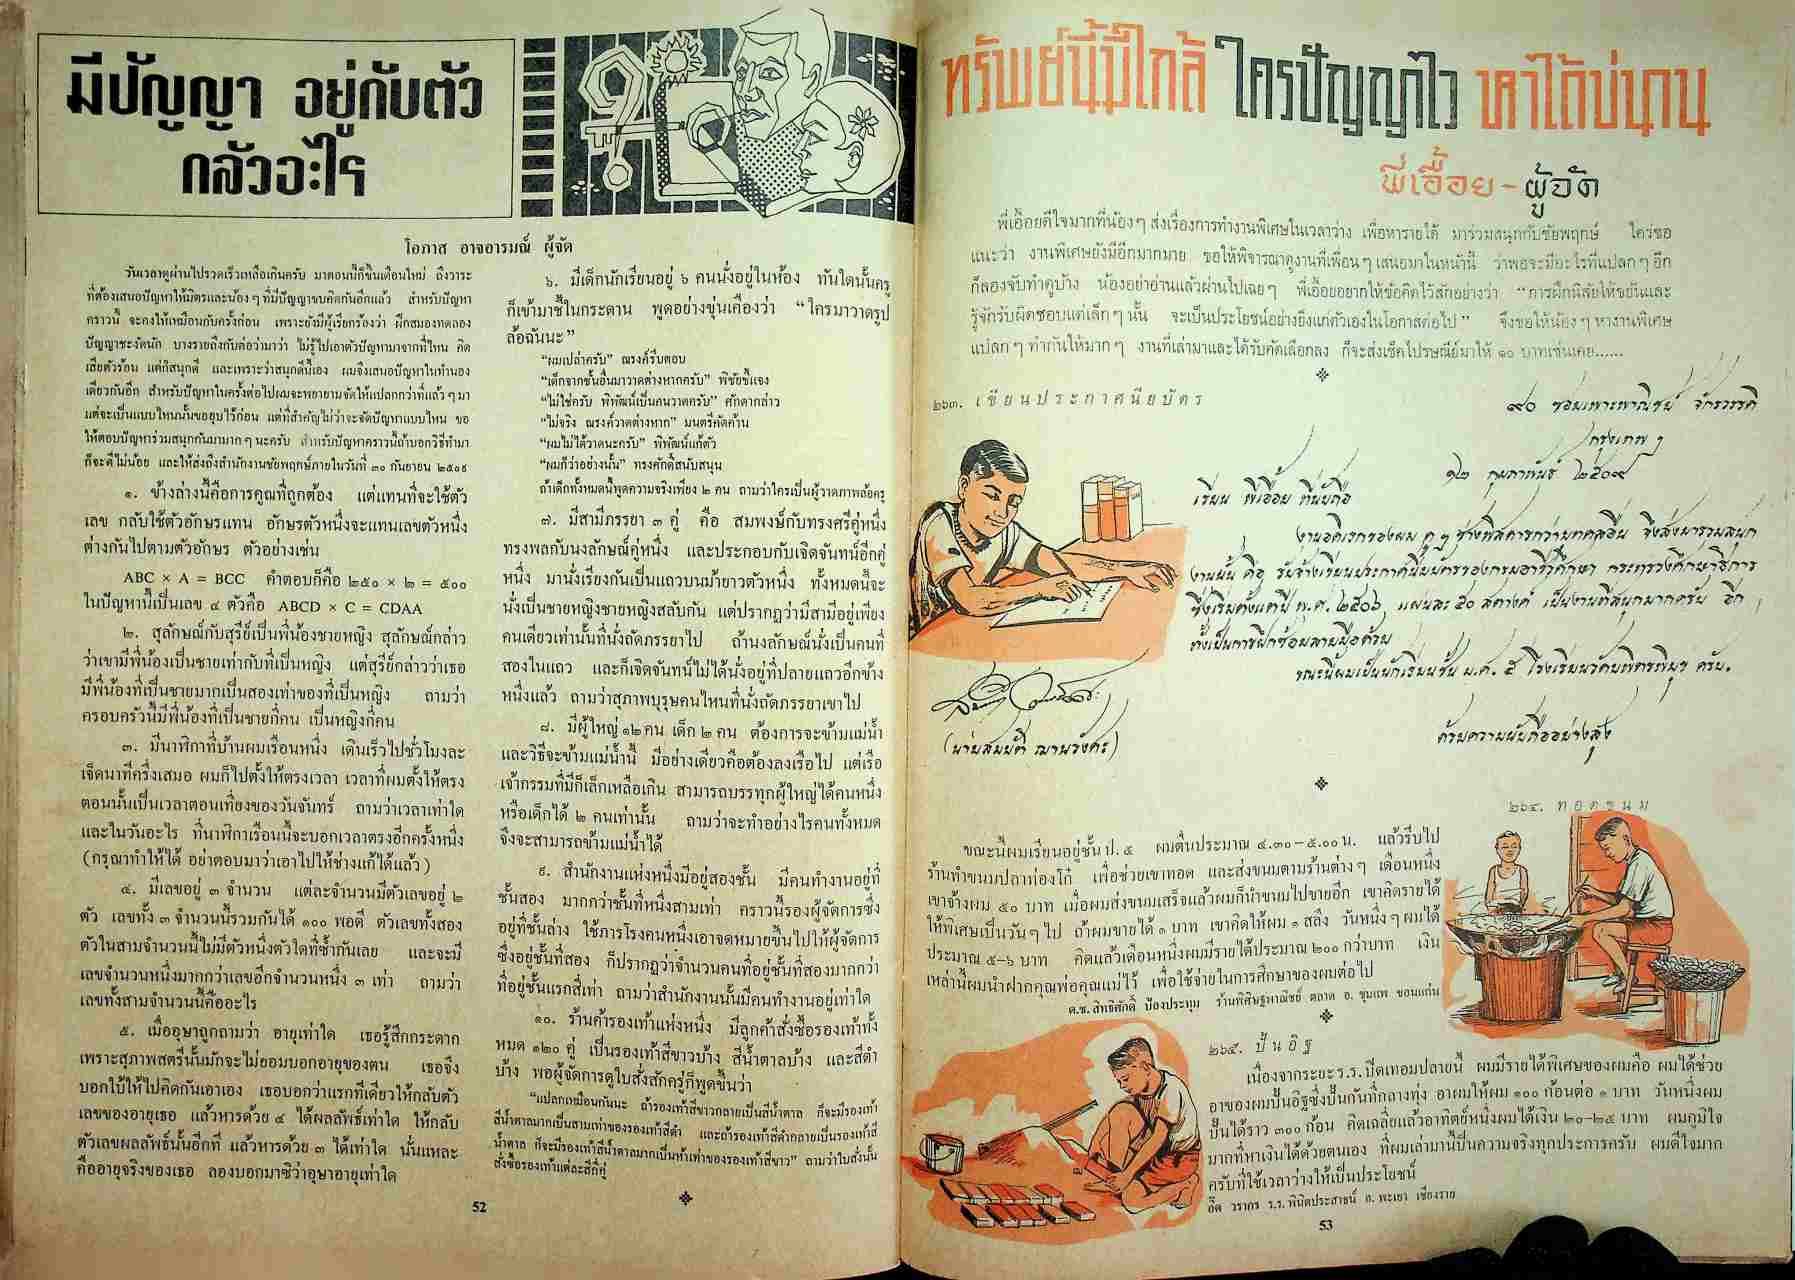 มีปัญญา อยู่กับตัว
กลัวอะไร
โอภาส อาจอารมณ์ ผู้จัด
วันเวลาดูผ่านไปรวดเร็วเหลือเกินครับ มาตอนนี้ก็ขึ้นเดือนใหม่ ถึงวาระ
ที่ต้องเสนอปัญหาให้มิตรและน้อง ๆ ที่มีปัญญาขบคิดกันอีกแล้ว สำหรับปัญหา
คราวนี้ จะคงให้เหมือนกับครั้งก่อน เพราะยังมีผู้เรียกร้องว่า ฝึกสมองทดลอง
ปัญญาชะงัดนัก บางรายถึงกับต่อว่ามาว่า ไม่รู้ไปเอาตัวปัญหามาจากที่ไหน คิด
เสียตัวร้อน แต่ก็สนุกดี และเพราะว่าสนุกดีนี้เอง ผมจึงเสนอปัญหาในทำนอง
เดียวกันอีก สำหรับปัญหาในครั้งต่อไปผมจะพยายามจัดให้แปลกกว่าที่แล้ว ๆ มา
แต่จะเป็นแบบไหนนั้นขออุบไว้ก่อน แต่ที่สำคัญไม่ว่าจะจัดปัญหาแบบไหน ขอ
ให้ตอบปัญหาร่วมสนุกกันมามาก ๆ นะครับ สำหรับปัญหาคราวนี้ถ้าบอกวิธีทำมา
ก็จะดีไม่น้อย และให้ส่งถึงสำนักงานชัยพฤกษ์ภายในวันที่ ๓๐ กันยายน ๒๕๐๙
๑. ข้างล่างนี้คือการคูณที่ถูกต้อง แต่แทนที่จะใช้ตัว
เลข กลับใช้ตัวอักษรแทน อักษรตัวหนึ่งจะแทนเลขตัวหนึ่ง
ต่างกันไปตามตัวอักษร ตัวอย่างเช่น
ABC × A = BCC คำตอบก็คือ ๒๕๐ × ๒ = ๕๐๐
ในปัญหานี้เป็นเลข ๔ ตัวคือ ABCD × C = CDAA
๒. สุลักษณ์กับสุรีย์เป็นพี่น้องชายหญิง สุลักษณ์กล่าว
ว่าเขามีพี่น้องเป็นชายเท่ากับที่เป็นหญิง แต่สุรีย์กล่าวว่าเธอ
มีพี่น้องที่เป็นชายมากเป็นสองเท่าของที่เป็นหญิง ถามว่า
ครอบครัวนี้มีพี่น้องที่เป็นชายกี่คน เป็นหญิงกี่คน
๓. มีนาฬิกาที่บ้านผมเรือนหนึ่ง เดินเร็วไปชั่วโมงละ
เจ็ดนาทีครึ่งเสมอ ผมก็ไปตั้งให้ตรงเวลา เวลาที่ผมตั้งให้ตรง
ตอนนั้นเป็นเวลาตอนเที่ยงของวันจันทร์ ถามว่าเวลาเท่าใด
และในวันอะไร ที่นาฬิกาเรือนนี้จะบอกเวลาตรงอีกครั้งหนึ่ง
(กรุณาทำให้ได้ อย่าตอบมาว่าเอาไปให้ช่างแก้ได้แล้ว)
๔. มีเลขอยู่ ๓ จำนวน แต่ละจำนวนมีตัวเลขอยู่ ๒
ตัว เลขทั้ง ๓ จำนวนนี้รวมกันได้ ๑๐๐ พอดี ตัวเลขทั้งสอง
ตัวในสามจำนวนนี้ไม่มีตัวหนึ่งตัวใดที่ซ้ำกันเลย และจะมี
เลขจำนวนหนึ่งมากกว่าเลขอีกจำนวนหนึ่ง ๓ เท่า ถามว่า
เลขทั้งสามจำนวนนี้คืออะไร
๕. เมื่ออุษาถูกถามว่า อายุเท่าใด เธอรู้สึกกระดาก
เพราะสุภาพสตรีนั้นมักจะไม่ยอมบอกอายุของตน เธอจึง
บอกใบ้ให้ไปคิดกันเอาเอง เธอบอกว่าแรกทีเดียวให้กลับตัว
เลขของอายุเธอ แล้วหารด้วย ๔ ได้ผลลัพธ์เท่าใด ให้กลับ
ตัวเลขผลลัพธ์นั้นอีกที แล้วหารด้วย ๓ ได้เท่าใด นั่นแหละ
คืออายุจริงของเธอ ลองบอกมาซิว่าอุษาอายุเท่าใด
๖. มีเด็กนักเรียนอยู่ ๖ คนนั่งอยู่ในห้อง ทันใดนั้นครู
ก็เข้ามาชี้ในกระดาน พูดอย่างขุ่นเคืองว่า “ใครมาวาดรูป
ล้อฉันนะ”
“ผมเปล่าครับ” ณรงค์รีบตอบ
“เด็กจากชั้นอื่นมาวาดต่างหากครับ” พิชัยชี้แจง
“ไม่ใช่ครับ พิพัฒน์เป็นคนวาดครับ” ศักดากล่าว
“ไม่จริง ณรงค์วาดต่างหาก” มนตรีคัดค้าน
“ผมไม่ได้วาดนะครับ” พิพัฒน์แก้ตัว
“ผมก็ว่าอย่างนั้น” ทรงศักดิ์สนับสนุน
ถ้าเด็กทั้งหมดนี้พูดความจริงเพียง ๒ คน ถามว่าใครเป็นผู้วาดภาพล้อครู
๗. มีสามีภรรยา ๓ คู่ คือ สมพงษ์กับทรงศรีคู่หนึ่ง
ทรงพลกับนงลักษณ์คู่หนึ่ง และประกอบกับเจิดจันทน์อีกคู่
หนึ่ง มานั่งเรียงกันเป็นแถวบนม้ายาวตัวหนึ่ง ทั้งหมดนี้จะ
นั่งเป็นชายหญิงชายหญิงสลับกัน แต่ปรากฏว่ามีสามีอยู่เพียง
คนเดียวเท่านั้นที่นั่งถัดภรรยาไป ถ้านงลักษณ์นั่งเป็นคนที่
สองในแถว และก็เจิดจันทน์ไม่ได้นั่งอยู่ที่ปลายแถวอีกข้าง
หนึ่งแล้ว ถามว่าสุภาพบุรุษคนไหนที่นั่งถัดภรรยาเขาไป
๘. มีผู้ใหญ่ ๑๒ คน เด็ก ๒ คน ต้องการจะข้ามแม่น้ำ
และวิธีจะข้ามแม่น้ำนี้ มีอย่างเดียวคือต้องลงเรือไป แต่เรือ
เจ้ากรรมที่มีก็เล็กเหลือเกิน สามารถบรรทุกผู้ใหญ่ได้คนหนึ่ง
หรือเด็กได้ ๒ คนเท่านั้น ถามว่าจะทำอย่างไรคนทั้งหมด
จึงจะสามารถข้ามแม่น้ำได้
๙. สำนักงานแห่งหนึ่งมีอยู่สองชั้น มีคนทำงานอยู่ที่
ชั้นสอง มากกว่าชั้นที่หนึ่งสามเท่า คราวนี้รองผู้จัดการซึ่ง
อยู่ที่ชั้นล่าง ใช้ภารโรงคนหนึ่งเอาจดหมายขึ้นไปให้ผู้จัดการ
ซึ่งอยู่ชั้นที่สอง ก็ปรากฏว่าจำนวนคนที่อยู่ชั้นที่สองมากกว่า
ที่อยู่ชั้นแรกสี่เท่า ถามว่าสำนักงานนั้นมีคนทำงานอยู่เท่าใด
๑๐. ร้านค้ารองเท้าแห่งหนึ่ง มีลูกค้าสั่งซื้อรองเท้าทั้ง
หมด ๑๒๐ คู่ เป็นรองเท้าสีขาวบ้าง สีน้ำตาลบ้าง และสีดำ
บ้าง พอผู้จัดการดูใบสั่งสักครู่ก็พูดขึ้นว่า
“แปลกเหมือนกันนะ ถ้ารองเท้าสีขาวกลายเป็นสีน้ำตาล ก็จะมีรองเท้า
สีน้ำตาลมากเป็นสามเท่าของรองเท้าสีดำ และถ้ารองเท้าสีดำกลายเป็นรองเท้าสี
น้ำตาล ก็จะมีรองเท้าสีน้ำตาลมากเป็นห้าเท่าของรองเท้าสีขาว” ถามว่าใบสั่งนั้น
สั่งซื้อรองเท้าแต่ละสีกี่คู่
52
ทรัพย์นี้มีใกล้ ใครปัญญาไว หาได้บ่นาน
พี่เอื้อย - ผู้จัด
พี่เอื้อยดีใจมากที่น้อง ๆ ส่งเรื่องการทำงานพิเศษในเวลาว่าง เพื่อหารายได้ มาร่วมสนุกกับชัยพฤกษ์ ใคร่ขอ
แนะว่า งานพิเศษยังมีอีกมากมาย ขอให้พิจารณาดูงานที่เพื่อน ๆ เสนอมาในหน้านี้ ว่าพอจะมีอะไรที่แปลก ๆ อีก
ก็ลองจับทำดูบ้าง น้องอย่าอ่านแล้วผ่านไปเฉย ๆ พี่เอื้อยอยากให้ข้อคิดไว้สักอย่างว่า “การฝึกนิสัยให้ขยันและ
รู้จักรับผิดชอบแต่เล็ก ๆ นั้น จะเป็นประโยชน์อย่างยิ่งแก่ตัวเองในโอกาสต่อไป” จึงขอให้น้อง ๆ หางานพิเศษ
แปลก ๆ ทำกันให้มาก ๆ งานที่เล่ามาและได้รับคัดเลือกลง ก็จะส่งเช็คไปรษณีย์มาให้ ๑๐ บาทเช่นเคย......
๒๖๓. เขียนประกาศนียบัตร
๙๐ ซอยเพาะพาณิชย์ จักรวรรดิ
กรุงเทพ ฯ
๑๒ กุมภาพันธ์ ๒๕๐๙
เรียน พี่เอื้อย ที่นับถือ
งานอดิเรกของผม ดู ๆ ช่างพิสดารกว่าบุคคลอื่น จึงส่งมาร่วมสนุก
งานนั้น คือ รับจ้างเขียนประกาศนียบัตรของกรมอาชีวศึกษา กระทรวงศึกษาธิการ
ซึ่งเริ่มตั้งแต่ปี พ.ศ. ๒๕๐๖, แผ่นละ ๕๐ สตางค์ เป็นงานที่สนุกมากครับ อีก
ทั้งเป็นการฝึกซ้อมลายมือด้วย
ขณะนี้ผมเป็นนักเรียนชั้น ม.ศ. ๕ โรงเรียนวัดบพิตรพิมุข ครับ.
ด้วยความนับถืออย่างสูง
(นายสมบัติ ฌานวังศะ)
๒๖๔. ทอดขนม
ขณะนี้ผมเรียนอยู่ชั้น ป. ๕ ผมตื่นประมาณ ๔.๓๐–๕.๐๐ น. แล้วรีบไป
ร้านทำขนมปลาท่องโก๋ เพื่อช่วยเขาทอด และส่งขนมตามร้านต่าง ๆ เดือนหนึ่ง
เขาจ้างผม ๕๐ บาท เมื่อผมส่งขนมเสร็จแล้วผมก็นำขนมไปขายอีก เขาคิดรายได้
ให้พิเศษเป็นวัน ๆ ไป ถ้าผมขายได้ ๑ บาท เขาคิดให้ผม ๑ สลึง วันหนึ่ง ๆ ผมได้
ประมาณ ๕–๖ บาท คิดแล้วเดือนหนึ่งผมมีรายได้ประมาณ ๒๐๐ กว่าบาท เงิน
เหล่านี้ผมนำฝากคุณพ่อคุณแม่ไว้ เพื่อใช้จ่ายในการศึกษาของผมต่อไป
ด.ช. สิทธิศักดิ์ ป้องประทุม ร้านพิศิษฐพาณิชย์ ตลาด อ. ชุมแพ ขอนแก่น
๒๖๕. ปั้นอิฐ
เนื่องจากระยะ ร.ร. ปิดเทอมปลายนี้ ผมมีรายได้พิเศษของผมคือ ผมได้ช่วย
อาของผมปั้นอิฐซึ่งปั้นกันที่กลางทุ่ง อาผมให้ผม ๑๐๐ ก้อนต่อ ๑ บาท วันหนึ่งผม
ปั้นได้ราว ๓๐๐ ก้อน คิดเฉลี่ยแล้วอาทิตย์หนึ่งผมได้เงิน ๒๐-๒๕ บาท ผมภูมิใจ
มากที่หาเงินได้ด้วยตนเอง ที่ผมเล่ามานี้เป็นความจริงทุกประการครับ ผมดีใจมาก
ครับที่ใช้เวลาว่างให้เป็นประโยชน์
อิ๊ด วรากร ร.ร. พินิตประสาธน์ อ. พะเยา เชียงราย
53